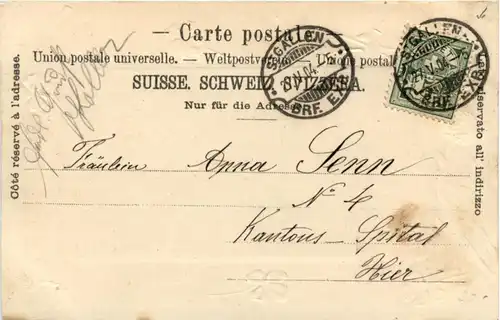 — Carte postale —
Union postale universelle. — Weltpostverein. — Unione postale
SUISSE. SCHWEIZ. SVIZZERA.
Nur für die Adresse
Côté réservé à l'adresse.
riservato all' indirizzo
ST. GALLEN
BRF. EXP.
ST. GALLEN
BRF. EXP.
Fräulein Anna Senn
No 4
Kantons-Spital
Hier